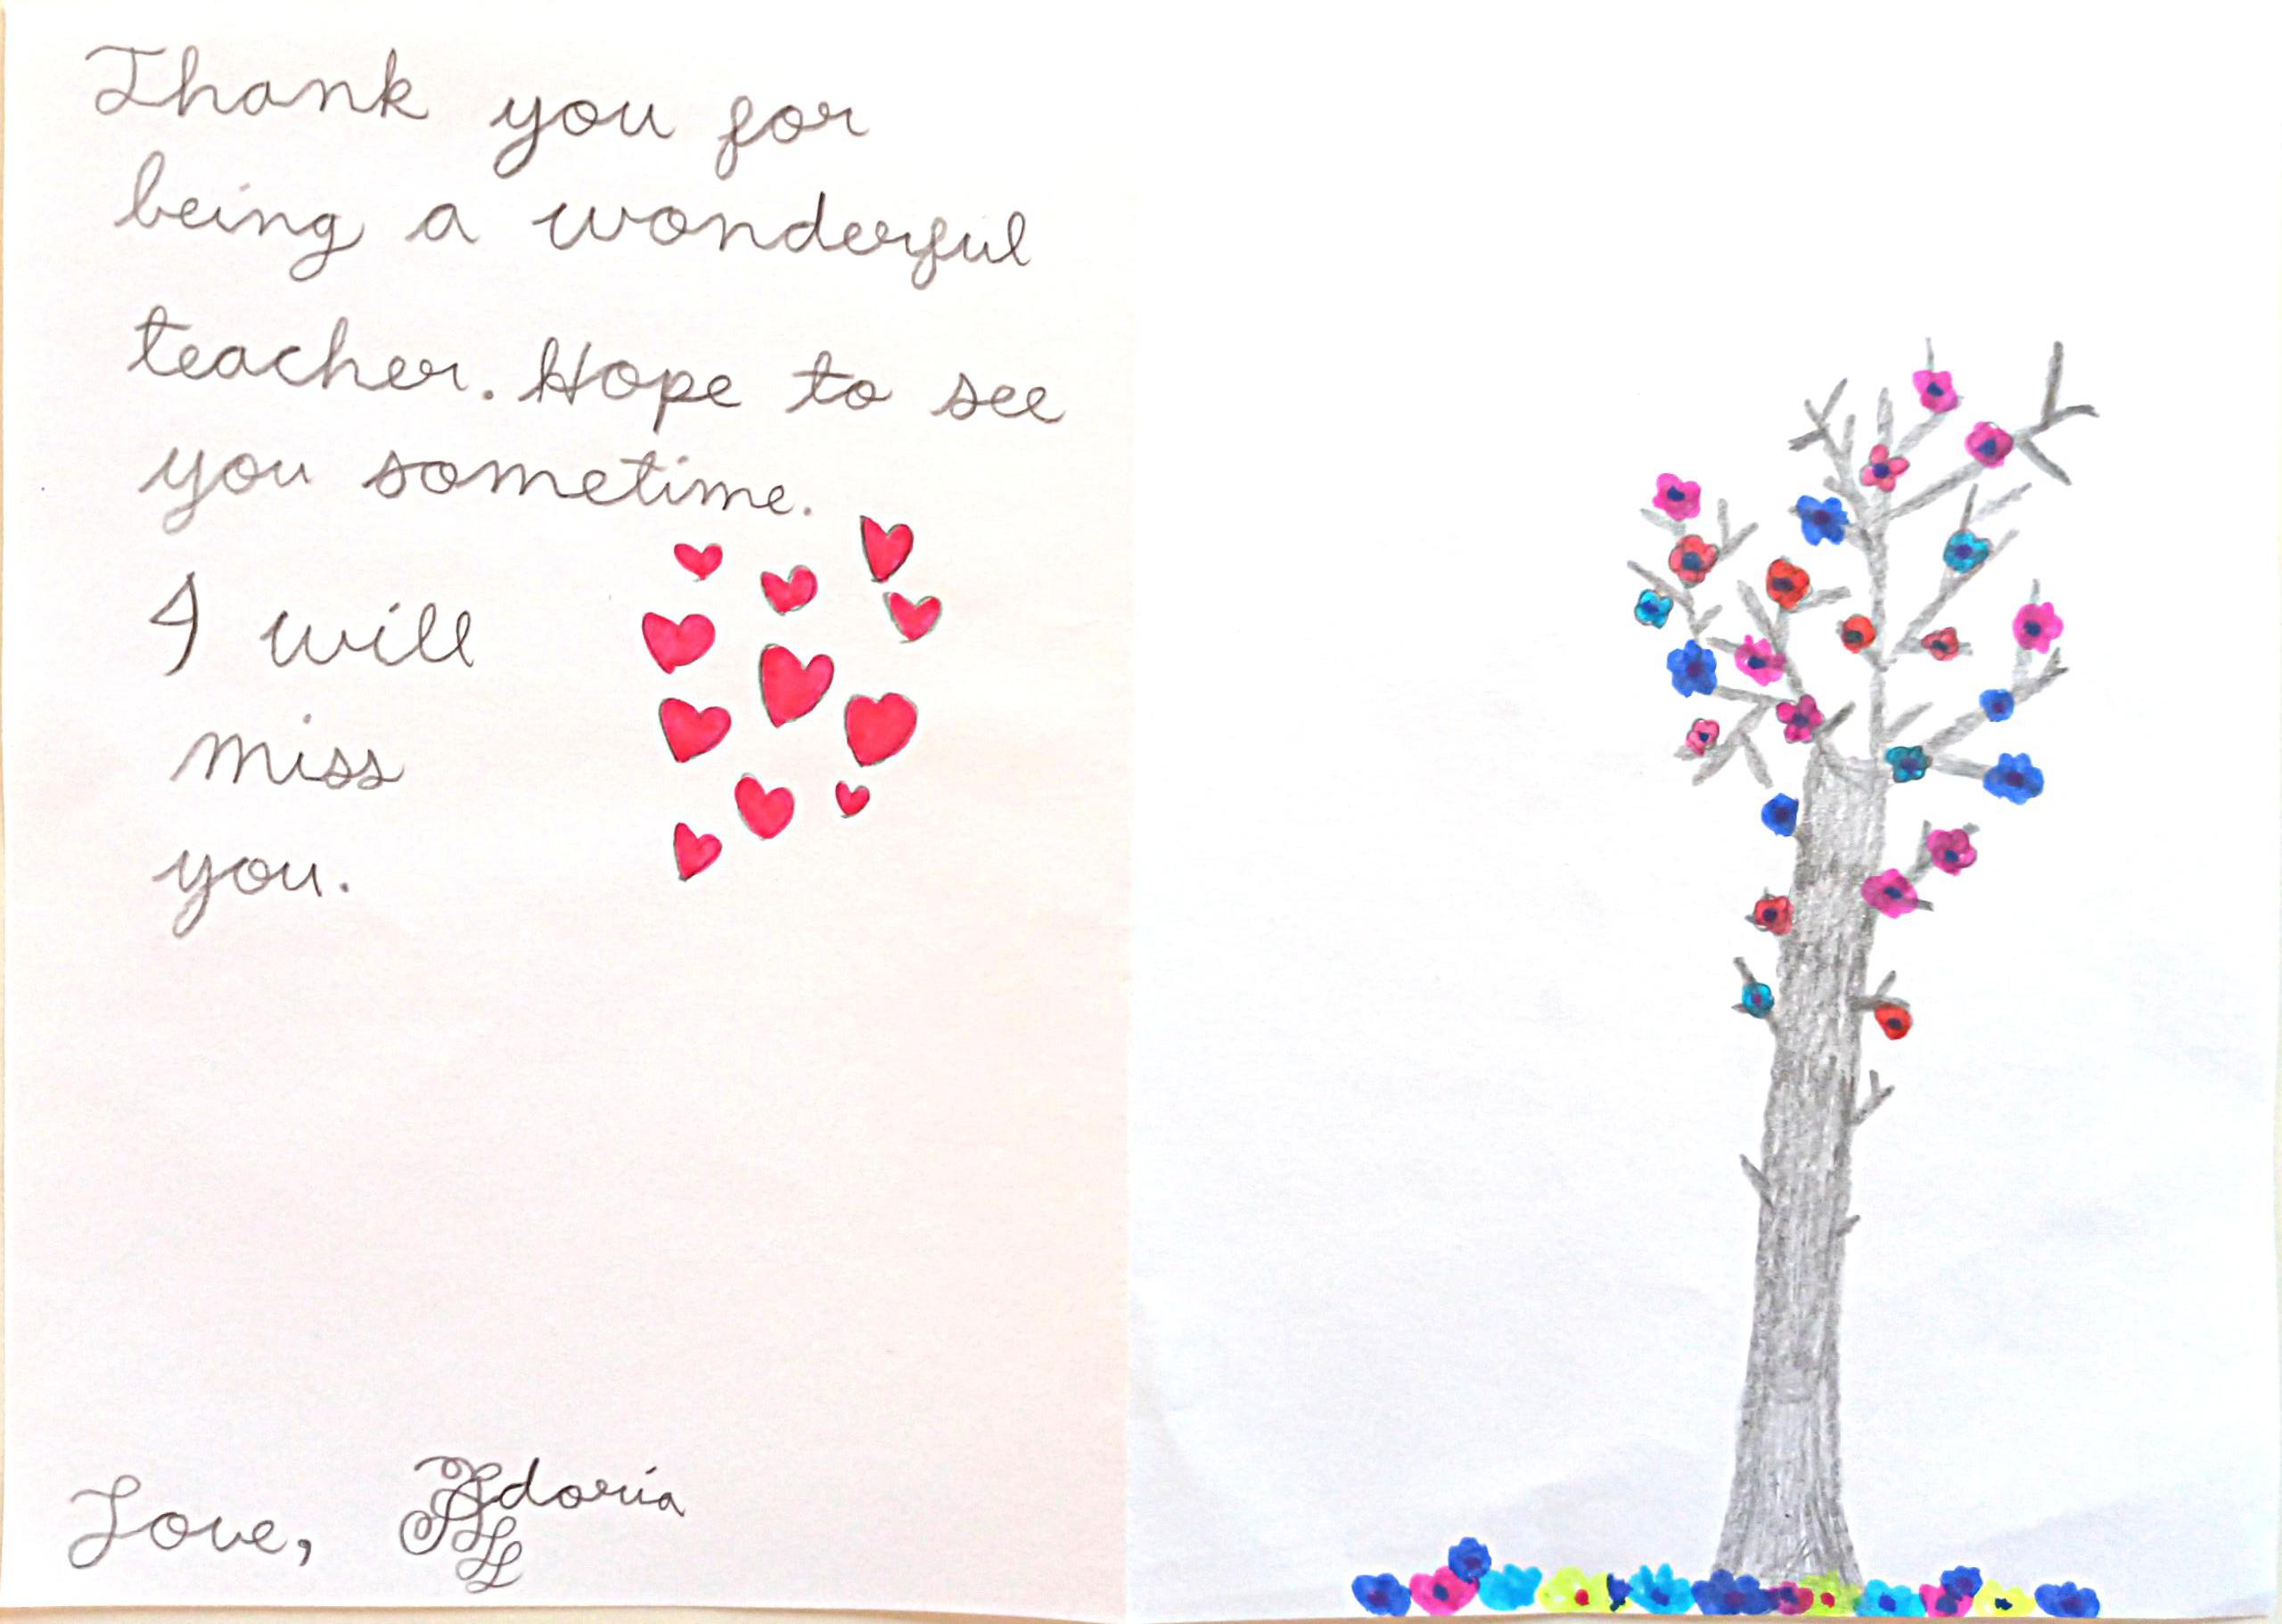 Thank you for
being a wonderful
teacher. Hope to see
you sometime.
I will
miss
you.
Love, Adoria